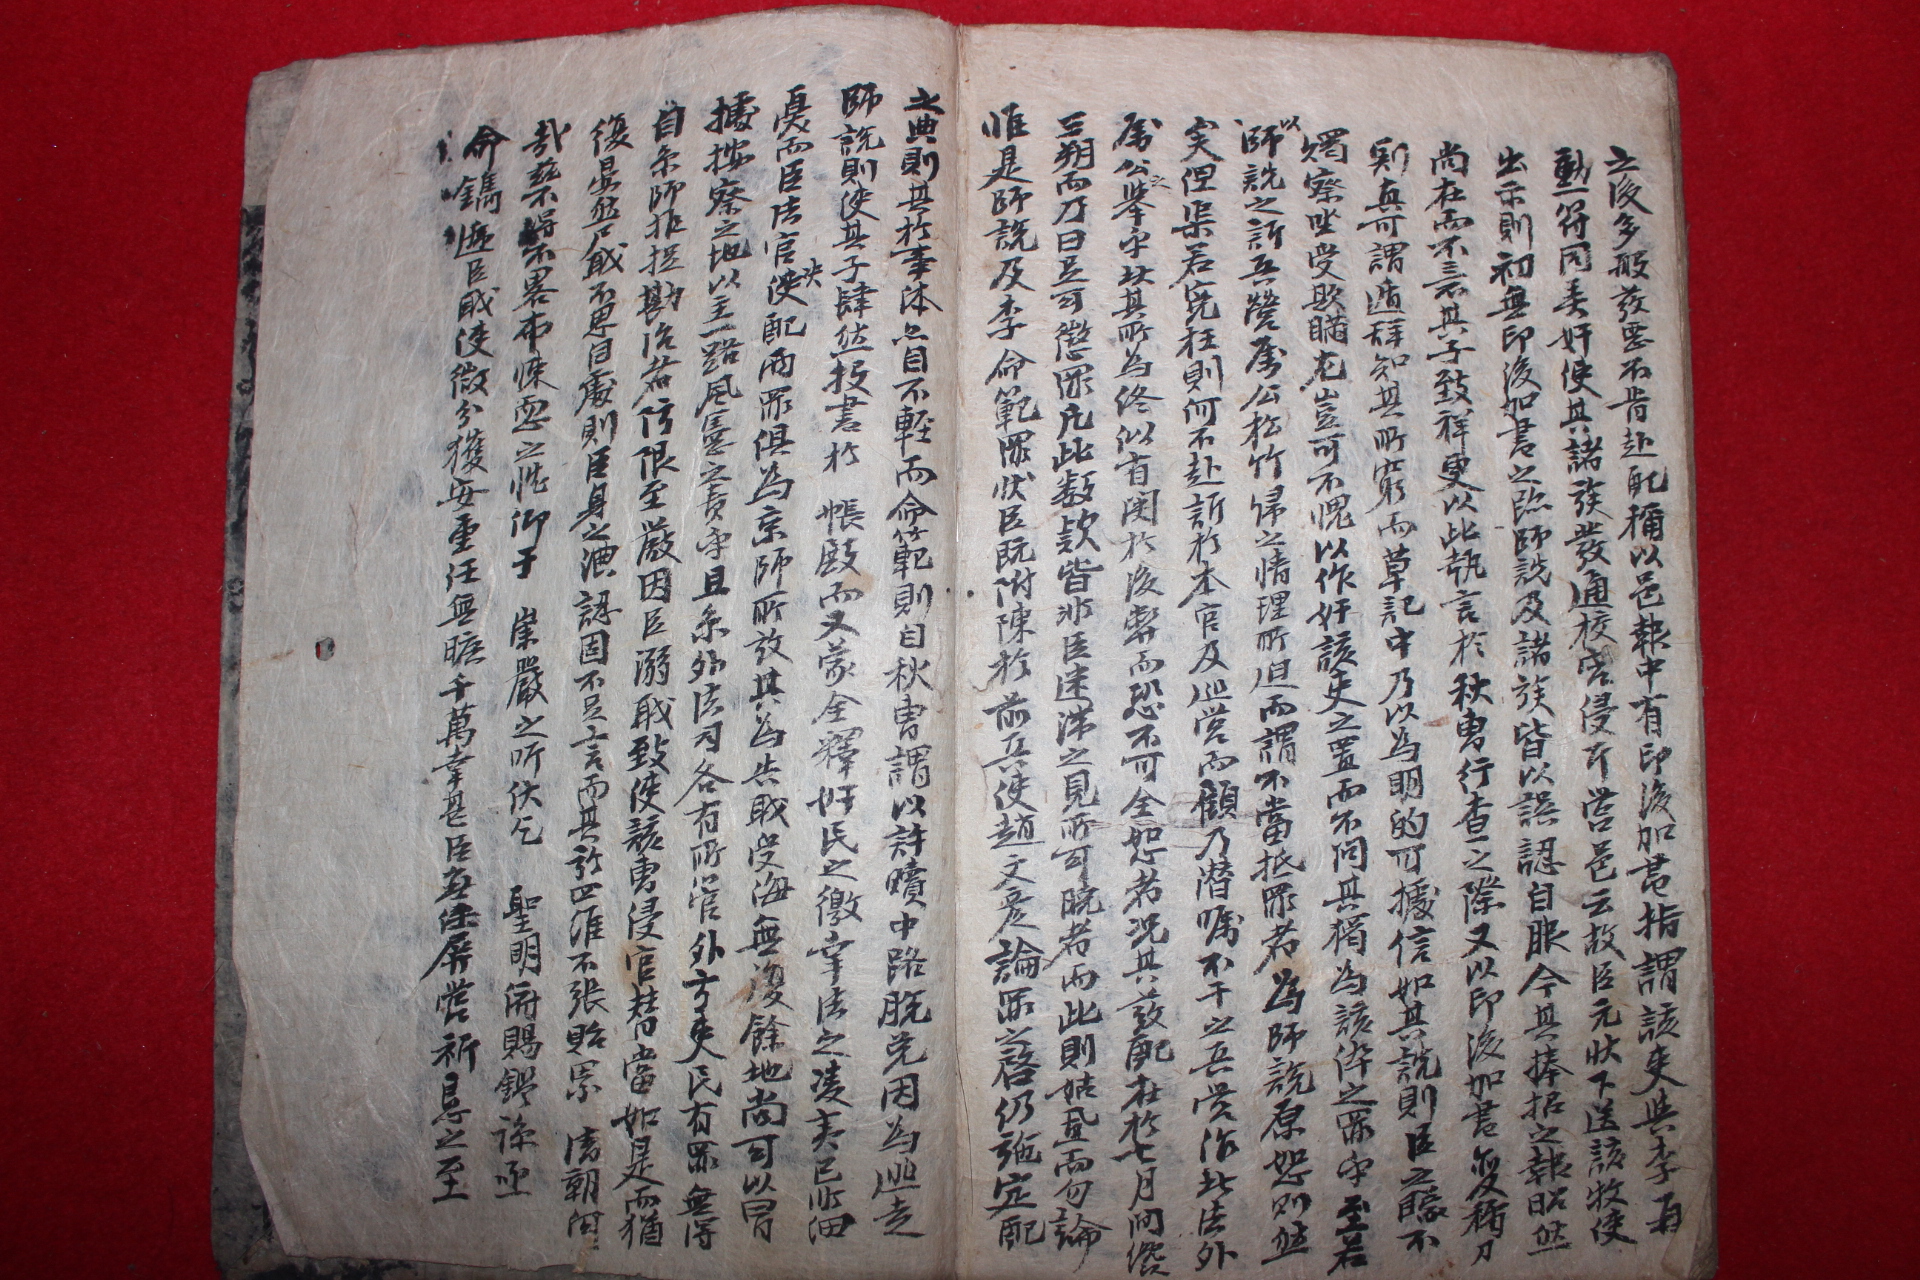 之後多般發惡不肯赴配稱以邑報中有印後加書指謂該吏與李
動符同弄奸使其諸族發通校宮侵斥營邑云故臣元狀下送該牧使
出示則初無印後加書之臨師說及諸族皆以誤認自服今其捧招之報昭然
尚在而不言其子致祥更以此執言於秋曹行查之際又以印後加書變稱刀
割真可謂遁辭知其所窮而草記中乃以為明的可據信如其說則臣之矇不
燭察坐受欺瞞尤豈可不愧以作奸該吏之置而不問其獨為該倅之罪乎至若
以師說之訴兵營屬公松竹歸之情理所迫而謂不當抵罪者為師說原恕則然
矣但渠若寃枉則何不赴訴於本官及巡營而顧乃潛囑不干之兵營作此法外
屬公之擧乎此其所為終似有関於後弊而恐不可全恕者況其發配在於七月間纔
三朔而乃曰足可懲罪凡此數款皆非臣迷滯之見所可曉者而此則姑置而勿論
惟是師說及李命範罪狀臣旣附陳於前兵使趙文彦論罪之啓仍施定配
之典則其於事體点自不輕而命範則自秋曹謂以許贖中路脫免因為逃走
師說則使其子肆然投書於帳殿而又蒙全釋奸民之徼幸法之凌夷已非細
憂而臣法官決使配兩罪俱為京師所放其為失職受侮無復餘地尚可以冒
據按察之地以主一路風憲之責乎且京外法司各有所管外方吏民有罪無得
自京師推捉勘治者仿限至嚴因臣溺職致使該曹侵官替當如是而猶
復晏然尸職不思自處則臣身之洒認固不足言而其於四維不張貽累清朝何
哉玆不得不畧布悚恧之忱仰于崇嚴之听伏乞聖明俯賜鑑諒亟
命鐫遞臣職使微分獲安重任無曠千萬幸甚臣無任屏營祈懇之至